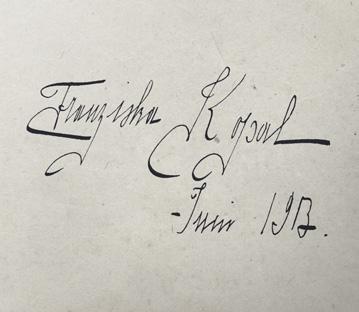 Franziska Kopal
Juni 1913.